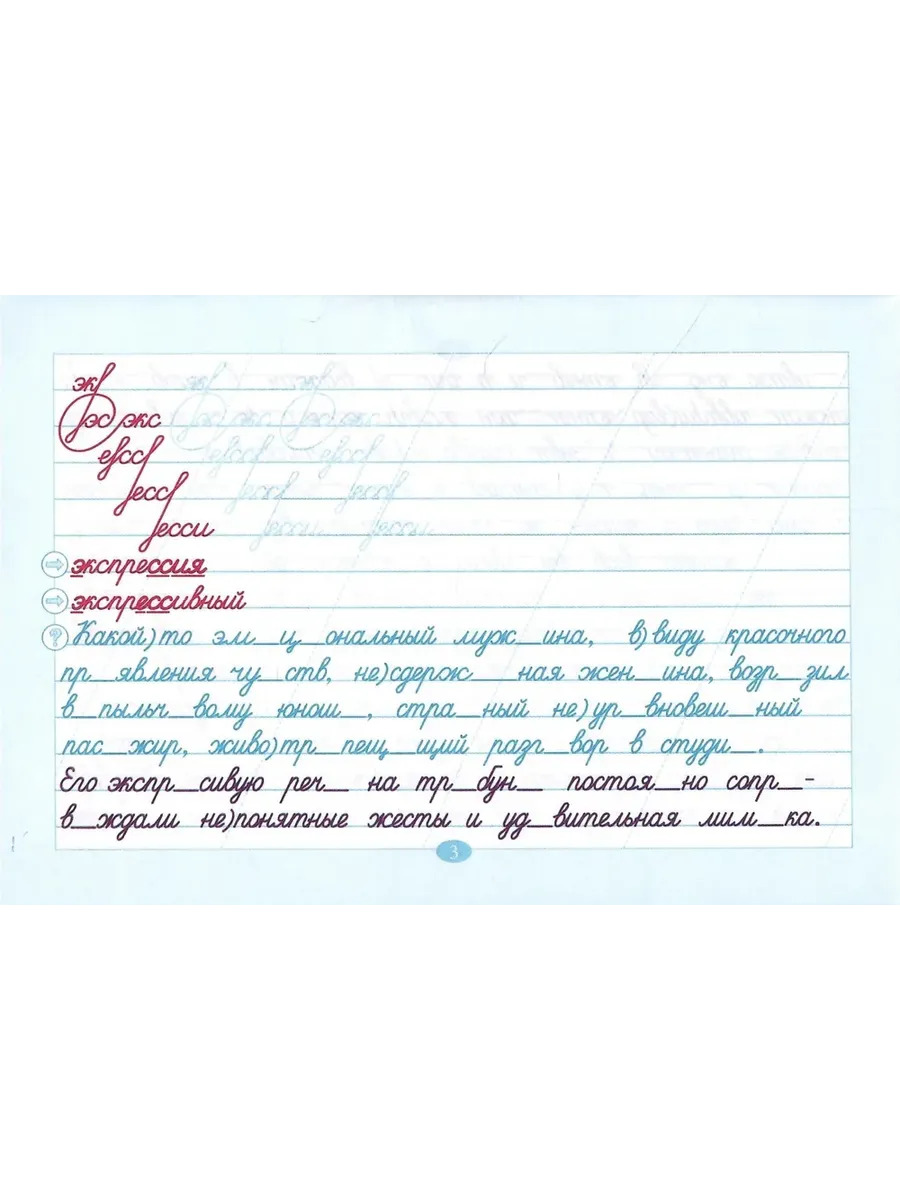 экр
рэс экс
ерсср
ресср
ресси
экспрессия
экспрессивный
Какой)то эм__ц__ональный мужч__ина, в)виду красочного
пр__явления чу__ств, не)сдерж__ная жен__ина, возр__зил
в__пыльч__вому юнош__, стра__ный не)ур__вновеш__ный
пас__жир, живо)тр__пещ__щий разг__вор в студи__.
Его экспр__сивую реч__ на тр__бун__ постоя__но сопр__-
в__ждали не)понятные жесты и уд__вительная мим__ка.
3